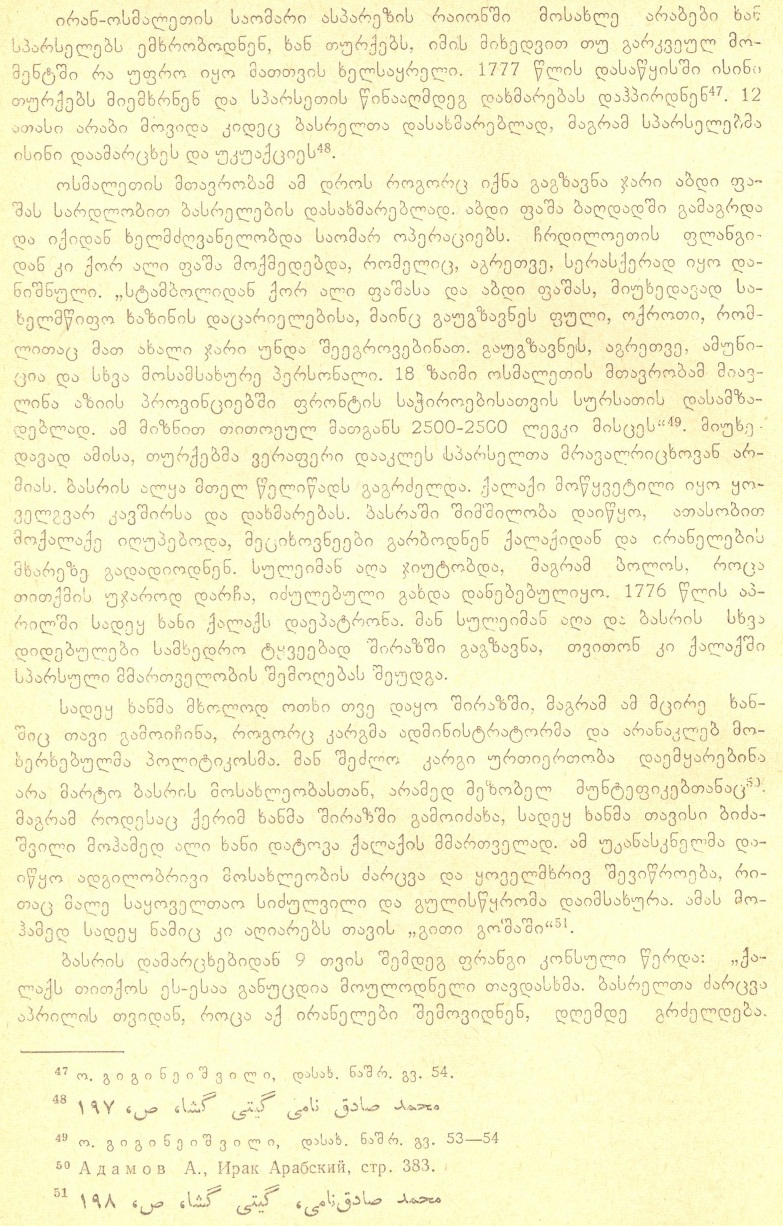 ირან-ოსმალეთის საომარი ასპარეზის რაიონში მოსახლე არაბები ხან
სპარსელებს ემხრობოდნენ, ხან თურქებს, იმის მიხედვით თუ გარკვეულ მო-
მენტში რა უფრო იყო მათთვის ხელსაყრელი. 1777 წლის დასაწყისში ისინი
თურქებს მიემხრნენ და სპარსეთის წინააღმდეგ დახმარებას დაჰპირდნენ⁴⁷. 12
ათასი არაბი მოვიდა კიდეც ბასრელთა დასახმარებლად, მაგრამ სპარსელებმა
ისინი დაამარცხეს და უკუაქციეს⁴⁸.
ოსმალეთის მთავრობამ ამ დროს როგორც იქნა გაგზავნა ჯარი აბდი ფა-
შას სარდლობით ბასრელების დასახმარებლად. აბდი ფაშა ბაღდადში გამაგრდა
და იქიდან ხელმძღვანელობდა საომარ ოპერაციებს. ჩრდილოეთის ფლანგი-
დან კი ქორ ალი ფაშა მოქმედებდა, რომელიც, აგრეთვე, სერასქერად იყო და-
ნიშნული. „სტამბოლიდან ქორ ალი ფაშასა და აბდი ფაშას, მიუხედავად სა-
ხელმწიფო ხაზინის დაცარიელებისა, მაინც გაუგზავნეს ფული, ოქროთი, რომ-
ლითაც მათ ახალი ჯარი უნდა შეეგროვებინათ. გაუგზავნეს, აგრეთვე, ამუნი-
ცია და სხვა მოსამსახურე პერსონალი. 18 ზაიმი ოსმალეთის მთავრობამ მიავ-
ლინა აზიის პროვინციებში ფრონტის საჭიროებისათვის სურსათის დასამზა-
დებლად. ამ მიზნით თითოეულ მათგანს 2500-2500 ლევკი მისცეს“⁴⁹. მიუხე-
დავად ამისა, თურქებმა ვერაფერი დააკლეს სპარსელთა მრავალრიცხოვან არ-
მიას. ბასრის ალყა მთელ წელიწადს გაგრძელდა. ქალაქი მოწყვეტილი იყო ყო-
ველგვარ კავშირსა და დახმარებას. ბასრაში შიმშილობა დაიწყო, ათასობით
მოქალაქე იღუპებოდა, მეციხოვნეები გარბოდნენ ქალაქიდან და ირანელების
მხარეზე გადადიოდნენ. სულეიმან აღა ჯიუტობდა, მაგრამ ბოლოს, როცა
თითქმის უჯაროდ დარჩა, იძულებული გახდა დანებებულიყო. 1776 წლის აპ-
რილში სადეყ ხანი ქალაქს დაეპატრონა. მან სულეიმან აღა და ბასრის სხვა
დიდებულები სამხედრო ტყვეებად შირაზში გაგზავნა, თვითონ კი ქალაქში
სპარსული მმართველობის შემოღებას შეუდგა.
სადეყ ხანმა მხოლოდ ოთხი თვე დაყო შირაზში, მაგრამ ამ მცირე ხან-
შიც თავი გამოიჩინა, როგორც კარგმა ადმინისტრატორმა და არანაკლებ მო-
ხერხებულმა პოლიტიკოსმა. მან შეძლო კარგი ურთიერთობა დაემყარებინა
არა მარტო ბასრის მოსახლეობასთან, არამედ მეზობელ მუნტეფიკებთანაც⁵⁰.
მაგრამ როდესაც ქერიმ ხანმა შირაზში გამოიძახა, სადეყ ხანმა თავისი ბიძა-
შვილი მოჰამედ ალი ხანი დატოვა ქალაქის მმართველად. ამ უკანასკნელმა და-
იწყო ადგილობრივი მოსახლეობის ძარცვა და ყოველმხრივ შევიწროება, რი-
თაც მალე საყოველთაო სიძულვილი და გულისწყრომა დაიმსახურა. ამას მო-
ჰამედ სადეყ ნამიც კი აღიარებს თავის „გითი გოშაში“⁵¹.
ბასრის დამარცხებიდან 9 თვის შემდეგ ფრანგი კონსული წერდა: „ქა-
ლაქს თითქოს ეს-ესაა განუცდია მოულოდნელი თავდასხმა. ბასრელთა ძარცვა
აპრილის თვიდან, როცა აქ ირანელები შემოვიდნენ, დღემდე გრძელდება.
⁴⁷ ო. გიგინეიშვილი, დასახ. ნაშრ. გვ. 54.
⁴⁸ محمد صادق نامی گیتی گشا، ص، ۱۹۷
⁴⁹ ო. გიგინეიშვილი, დასახ. ნაშრ. გვ. 53—54
⁵⁰ Адамов А., Ирак Арабский, стр. 383.
⁵¹ محمد صادق‌نامی، گیتی گشا، ص، ۱۹۸